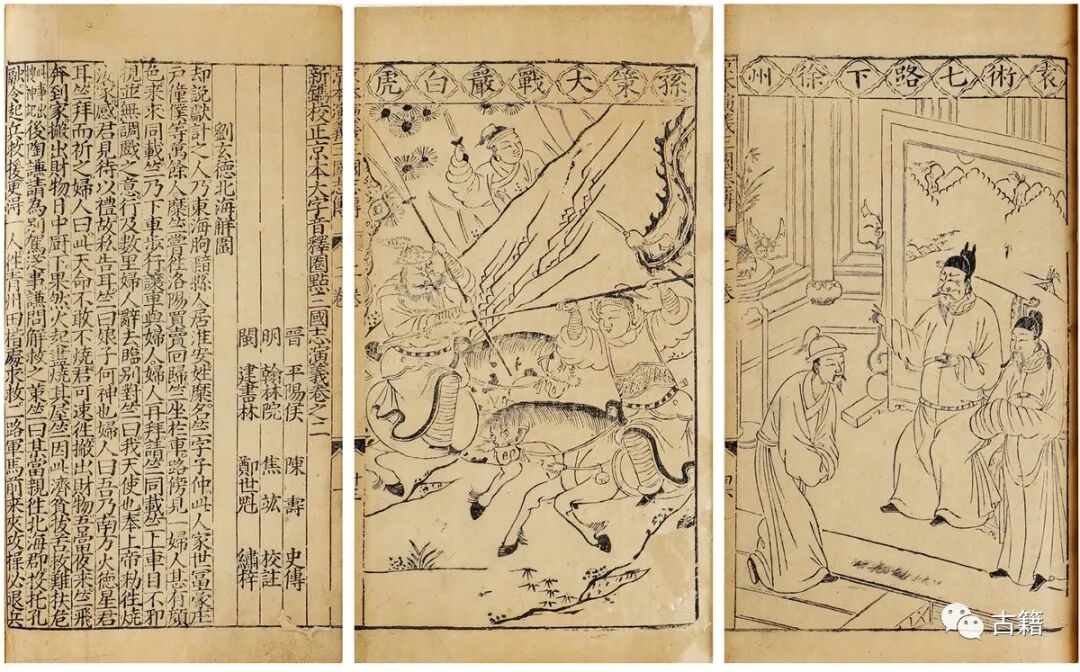 新鐫校正京本大字音釋圈點三國志演義卷之二
晉 平陽侯 陳 壽 史傳
明 翰林院 焦 竑 校註
閩 建書林 鄭世魁 繡梓
劉玄德北海解圍
却說獻計之人乃東海朐縣人居淮安姓糜名竺字子仲此人家世富豪庄
戶僮僕等萬余人糜竺嘗往洛陽買賣回歸竺坐於車路傍見一婦人甚有顏
色來求同載竺乃下車步行讓車與婦人婦人再拜請竺同載竺上車目不邪
視並無調戲之意行及數里婦人辭去臨別對竺曰我天使也奉上帝勑往燒
汝家感君見待以禮故私告耳竺曰娘子何神也婦人曰吾乃南方火德星君
耳竺拜而祈之婦人曰此天命不敢不燒君可速往搬出財物吾當夜來竺飛
奔到家搬出財物日中厨下果然火起盡燒其屋竺因此濟貧拔苦救難扶危
後陶謙請為別駕從事謙問解救之策竺曰某當親往北海郡投托孔
融令起兵救援更得一人往青州田楷處求救二路軍馬前來夾攻操必退兵
孫策大戰嚴白虎
袁術七路下徐州
古籍